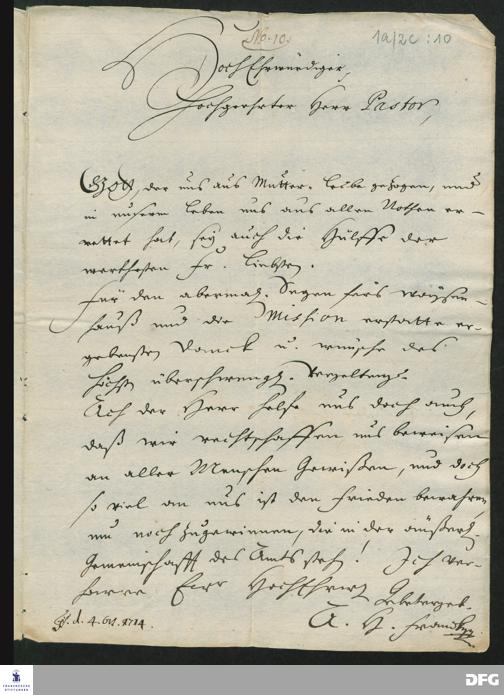 No. 10.
1a/2c : 10
HochEhrwürdiger,
Hochgeehrter Herr Pastor,
Gott, der uns aus Mutter-Leibe gezogen, und
in unserm Leben uns aus allen Nöthen er-
rettet hat, sey auch die Hülffe der
werthesten Fr. Liebsten.
Für den abermal. Segen fürs Waysen-
hauß und die Mission erstatte er-
gebensten Danck u. wünsche des
Höchsten überschwengl. Vergeltung.
Ach der Herr helfe uns doch auch,
daß wir rechtschaffen uns beweisen
an aller Menschen Gewißen, und doch
so viel an uns ist den Frieden bewahren,
um noch zugewinnen, die in der äußerl.
Gemeinschafft des Amts stehn! Ich ver-
harre Eurr HochEhrw
Gebetergeb.
H. d. 4. Oct. 1714.
A. H. Francke
FRANCKESCHE STIFTUNGEN
DFG